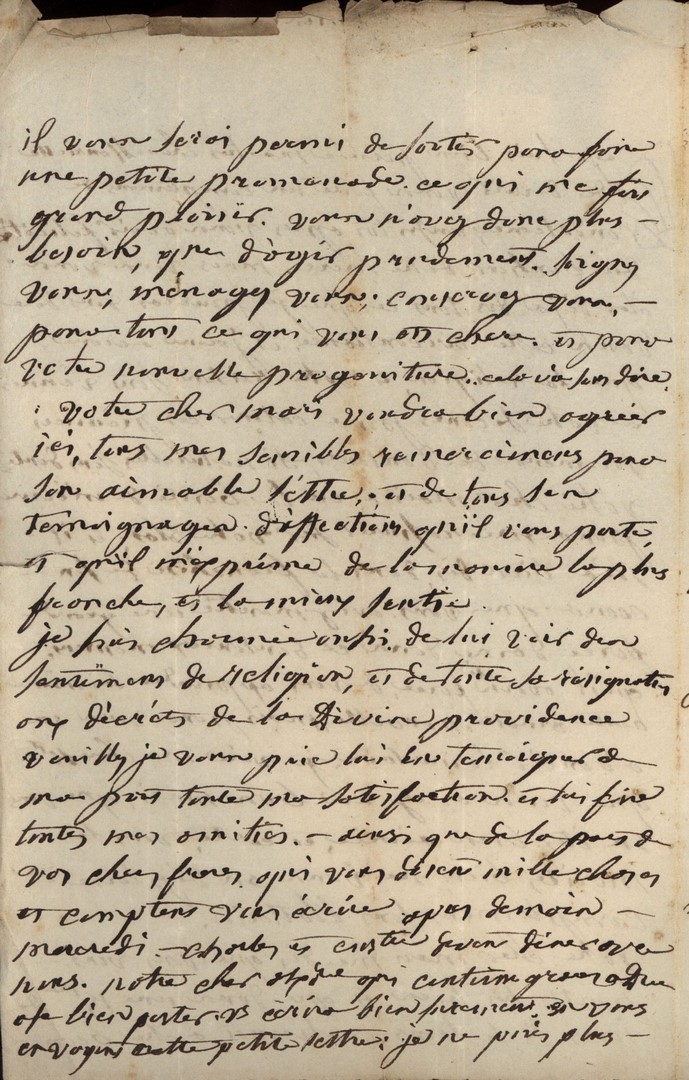 il vous seroi permi de sortir pour faire
une petite promenade. ce qui me fais
grand plaisir. vous n'avez donc plus –
besoin, que d'agir prudement. soignez
vous, ménagez vous; conservez vous, –
pour tous ce qui vous est chere. et pour
votre nouvelle progeniture.. cela va sans dire.
votre cher mari voudra bien agréer
ici, tous mes sensibles remerciemens pour
son aimable lettre. et de tous les
temoignages d'affections qu'il vous porte,
et qu'il m'exprime de la maniere la plus
franche, et la mieux sentie.
je suis charmée aussi de lui voir des
sentimens de religion, et de toute sa résignation
aux décrets de la Divine providence
veuillez je vous prie lui en temoigner de
ma part toute ma satisfaction. et lui faire
toutes mes amitiés. – ainsi que de la part de
vos chers freres. qui vous disent mille choses
et comptent vous écrire apres demain –
mercredi. – charles et doivent diner avec
nous. notre cher qui continue grace a Dieu
a se bien porter. vs écrira bien surement. en vous
envoyant cette petite lettre: je ne puis plus –